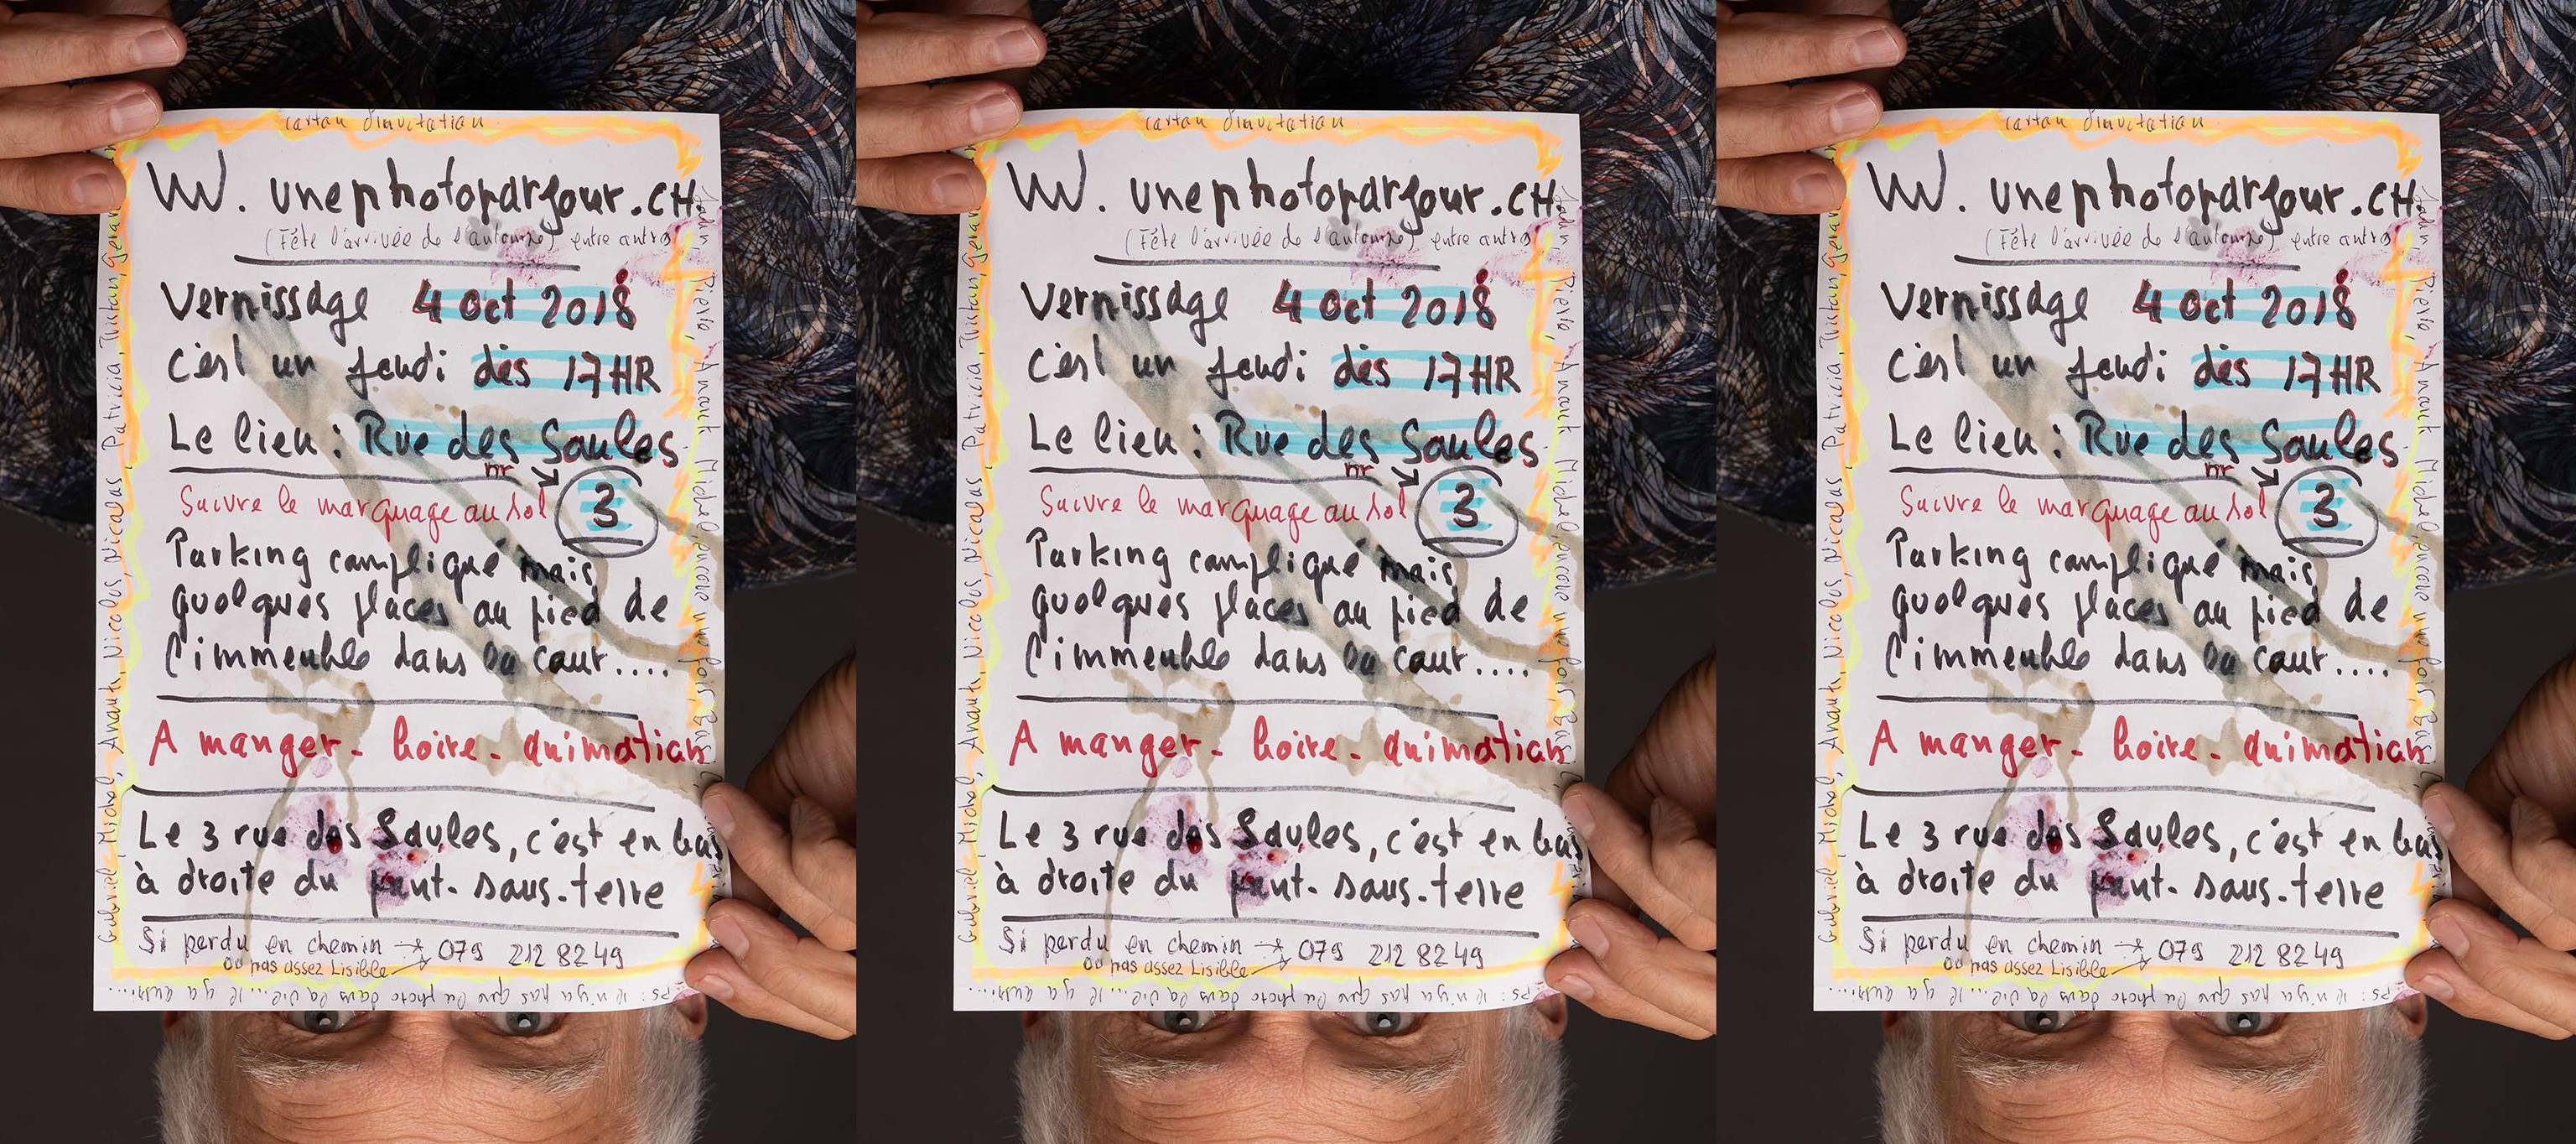 carton d'invitation
W. unephotoparjour.CH.
(Fête l'arrivée de l'automne) entre autre
Vernissage 4 Oct 2018
c'est un jeudi dès 17HR
Le lieu : Rue des Saules
nr 3
Suivre le marquage au sol
Parking compliqué mais
quelques places au pied de
l'immeuble dans la cour....
A manger - boire - animation
Le 3 rue des Saules, c'est en bas
à droite du pont-sous-terre
Si perdu en chemin → 079 212 82 49
ou pas assez Lisible
PS: il n'y a pas que la photo dans la vie... il y a aussi...
Gabriel, Michel, Anouk, Nicolas, Nicolas, Patricia, Tristan, Gérard
Pierre, Anouk, Michel, encore une fois
carton d'invitation
W. unephotoparjour.CH.
(Fête l'arrivée de l'automne) entre autre
Vernissage 4 Oct 2018
c'est un jeudi dès 17HR
Le lieu : Rue des Saules
nr 3
Suivre le marquage au sol
Parking compliqué mais
quelques places au pied de
l'immeuble dans la cour....
A manger - boire - animation
Le 3 rue des Saules, c'est en bas
à droite du pont-sous-terre
Si perdu en chemin → 079 212 82 49
ou pas assez Lisible
PS: il n'y a pas que la photo dans la vie... il y a aussi...
Gabriel, Michel, Anouk, Nicolas, Nicolas, Patricia, Tristan, Gérard
Pierre, Anouk, Michel, encore une fois
carton d'invitation
W. unephotoparjour.CH.
(Fête l'arrivée de l'automne) entre autre
Vernissage 4 Oct 2018
c'est un jeudi dès 17HR
Le lieu : Rue des Saules
nr 3
Suivre le marquage au sol
Parking compliqué mais
quelques places au pied de
l'immeuble dans la cour....
A manger - boire - animation
Le 3 rue des Saules, c'est en bas
à droite du pont-sous-terre
Si perdu en chemin → 079 212 82 49
ou pas assez Lisible
PS: il n'y a pas que la photo dans la vie... il y a aussi...
Gabriel, Michel, Anouk, Nicolas, Nicolas, Patricia, Tristan, Gérard
Pierre, Anouk, Michel, encore une fois